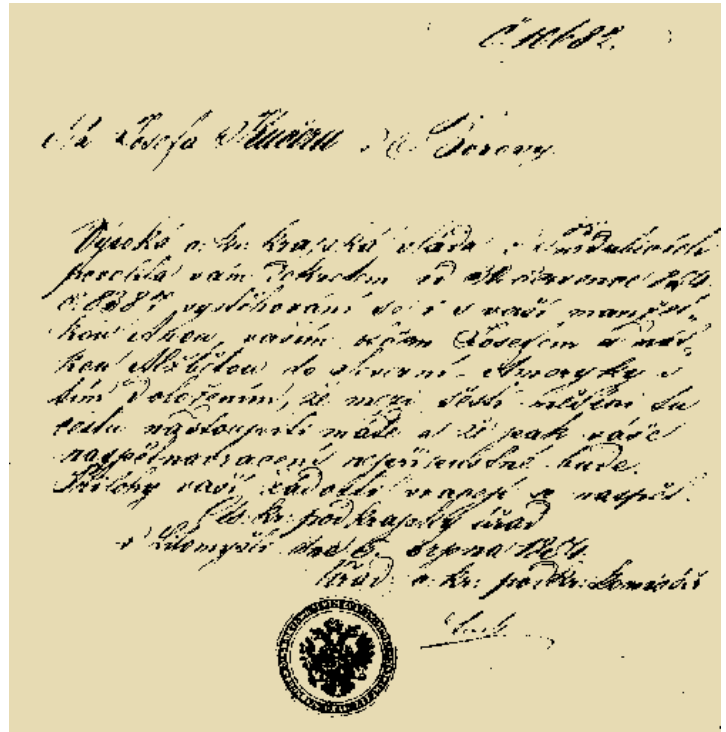 Č. 10682.
Na Josefa Kučeru z Borovy.
Vysoká c. kr. krajská vláda v Pardubicích
povolila vám dekretem od července 1854
č. 8387 vystěhování se i s vaší manžel-
kou Annou, vaším otcem Josefem a mat-
kou Alžbětou do severní Ameryky s
tím doložením, že mezi šesti měsíci tu
cestu nastoupiti máte a že pak váše
nazpětnavracení nepřípustné bude.
Přílohy vaší žádosti vracejí se nazpět.
C. kr. podkrajský úřad
v Litomyšli dne 5. srpna 1854.
c. kr. podkr.